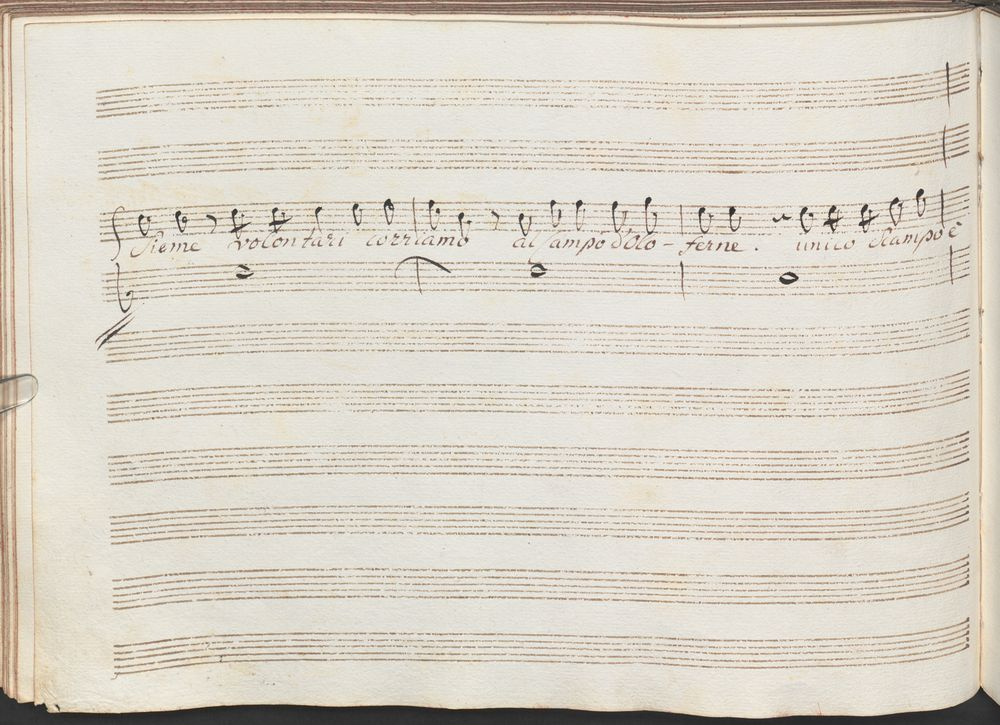 sieme volontari corriamo al campo d'Olo - ferne. unico scampo è